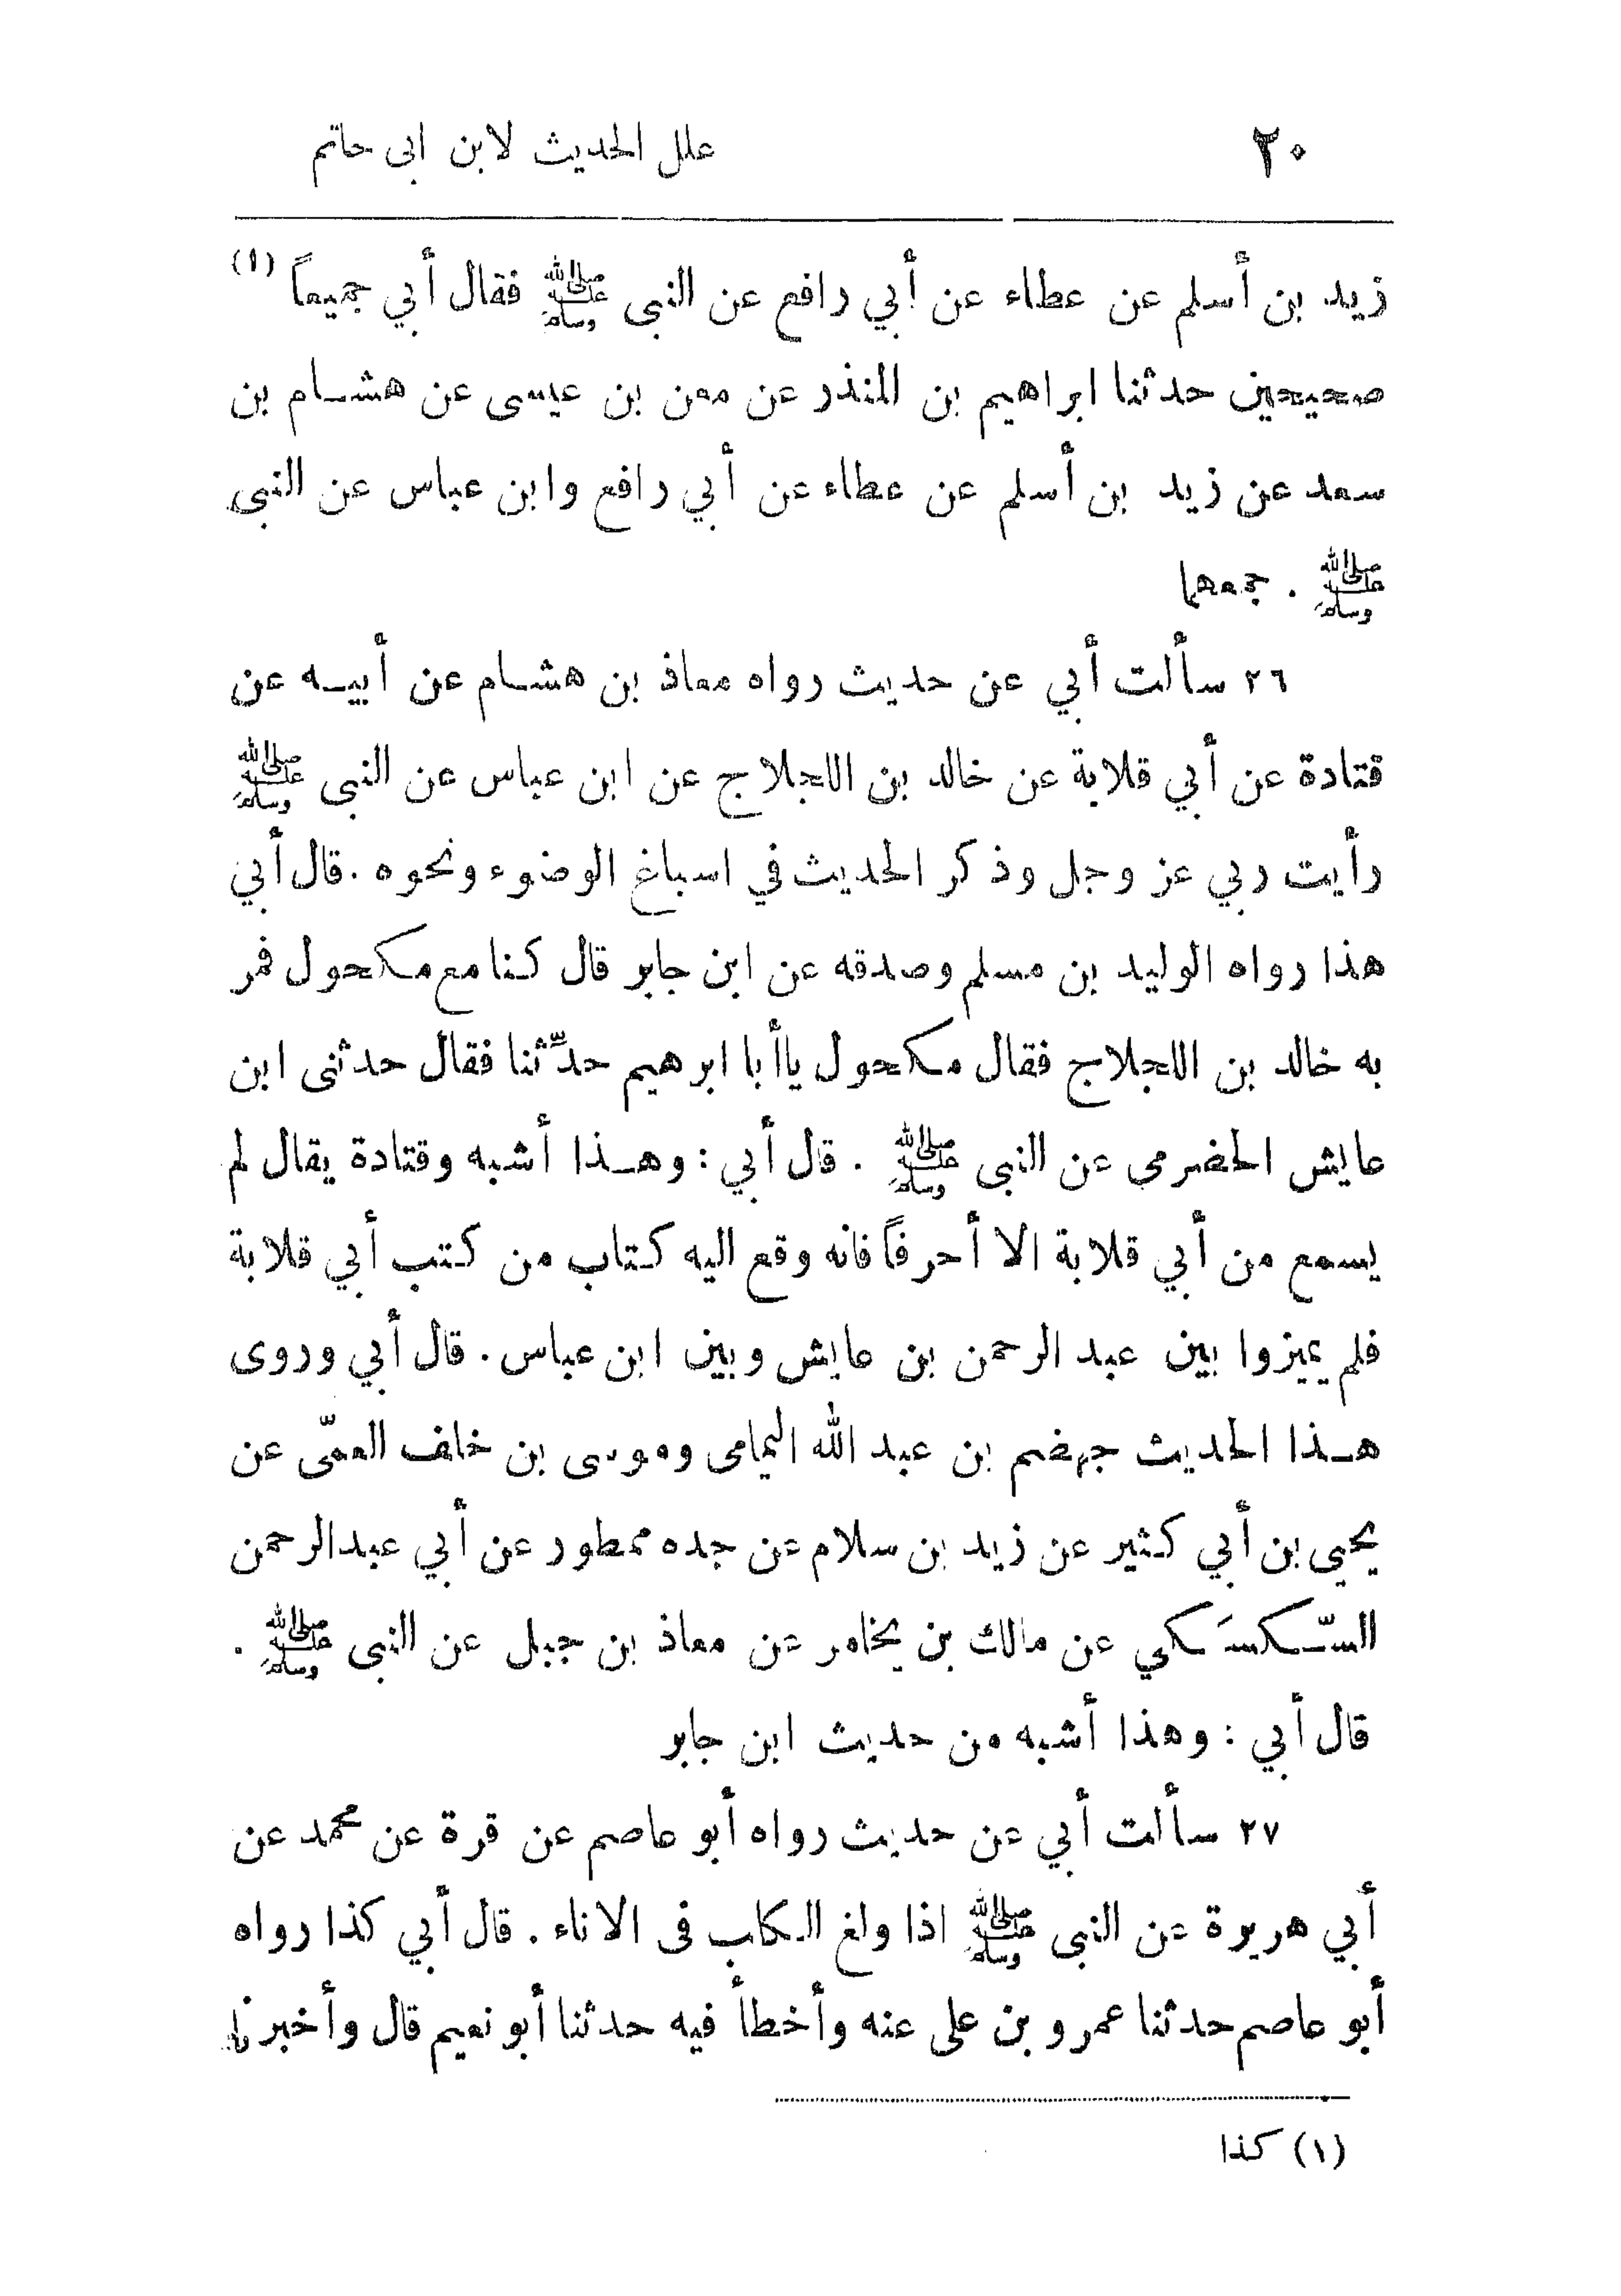 ٢٠ علل الحديث لابن ابى حاتم
زيد بن أسلم عن عطاء عن أبي رافع عن النبى ﷺ فقال أبي جميعاً (١)
صحيحين حدثنا ابراهيم بن المنذر عن معن بن عيسى عن هشام بن
سعد عن زيد بن أسلم عن عطاء عن أبي رافع وابن عباس عن النبى
ﷺ . جمعهما
٢٦ سألت أبي عن حديث رواه معاذ بن هشام عن أبيه عن
قتادة عن أبي قلابة عن خالد بن اللجلاج عن ابن عباس عن النبى ﷺ
رأيت ربي عز وجل وذكر الحديث في اسباغ الوضوء ونحوه . قال أبي
هذا رواه الوليد بن مسلم وصدقه عن ابن جابر قال كنا مع مكحول فمر
به خالد بن اللجلاج فقال مكحول ياأبا ابرهيم حدِّثنا فقال حدثنى ابن
عايش الحضرمى عن النبى ﷺ . قال أبي : وهذا أشبه وقتادة يقال لم
يسمع من أبي قلابة الا أحرفاً فانه وقع اليه كتاب من كتب أبي قلابة
فلم يميزوا بين عبد الرحمن بن عايش وبين ابن عباس . قال أبي وروى
هذا الحديث جهضم بن عبد الله اليمامى وموسى بن خلف العمّى عن
يحيى بن أبي كثير عن زيد بن سلام عن جده ممطور عن أبي عبدالرحمن
السّكسَكي عن مالك بن يخامر عن معاذ بن جبل عن النبى ﷺ .
قال أبي : وهذا أشبه من حديث ابن جابر
٢٧ سألت أبي عن حديث رواه أبو عاصم عن قرة عن محمد عن
أبي هريرة عن النبى ﷺ اذا ولغ الكلب فى الاناء . قال أبي كذا رواه
أبو عاصم حدثنا عمرو بن على عنه وأخطأ فيه حدثنا أبو نعيم قال وأخبرنا
(١) كذا